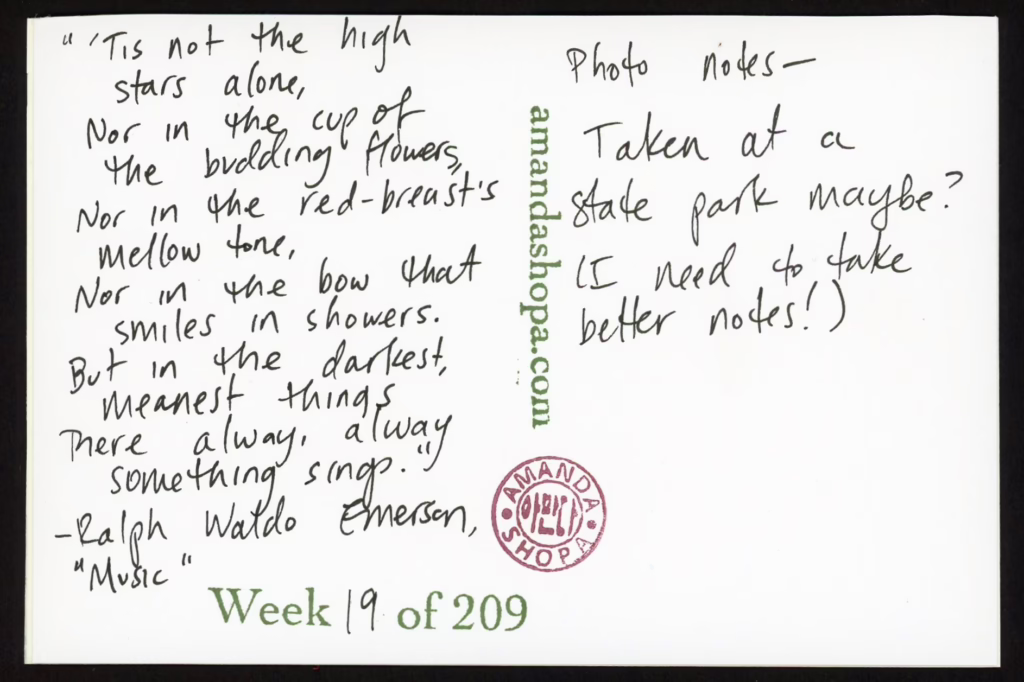 " 'Tis not the high
stars alone,
Nor in the cup of
the budding flowers,
Nor in the red-breast's
mellow tone,
Nor in the bow that
smiles in showers.
But in the darkest,
meanest things
There alway, alway
something sings."
-Ralph Waldo Emerson,
"Music"
Week 19 of 209
amandashopa.com
AMANDA
아만다
SHOPA
Photo notes—
Taken at a
state park maybe?
(I need to take
better notes!)